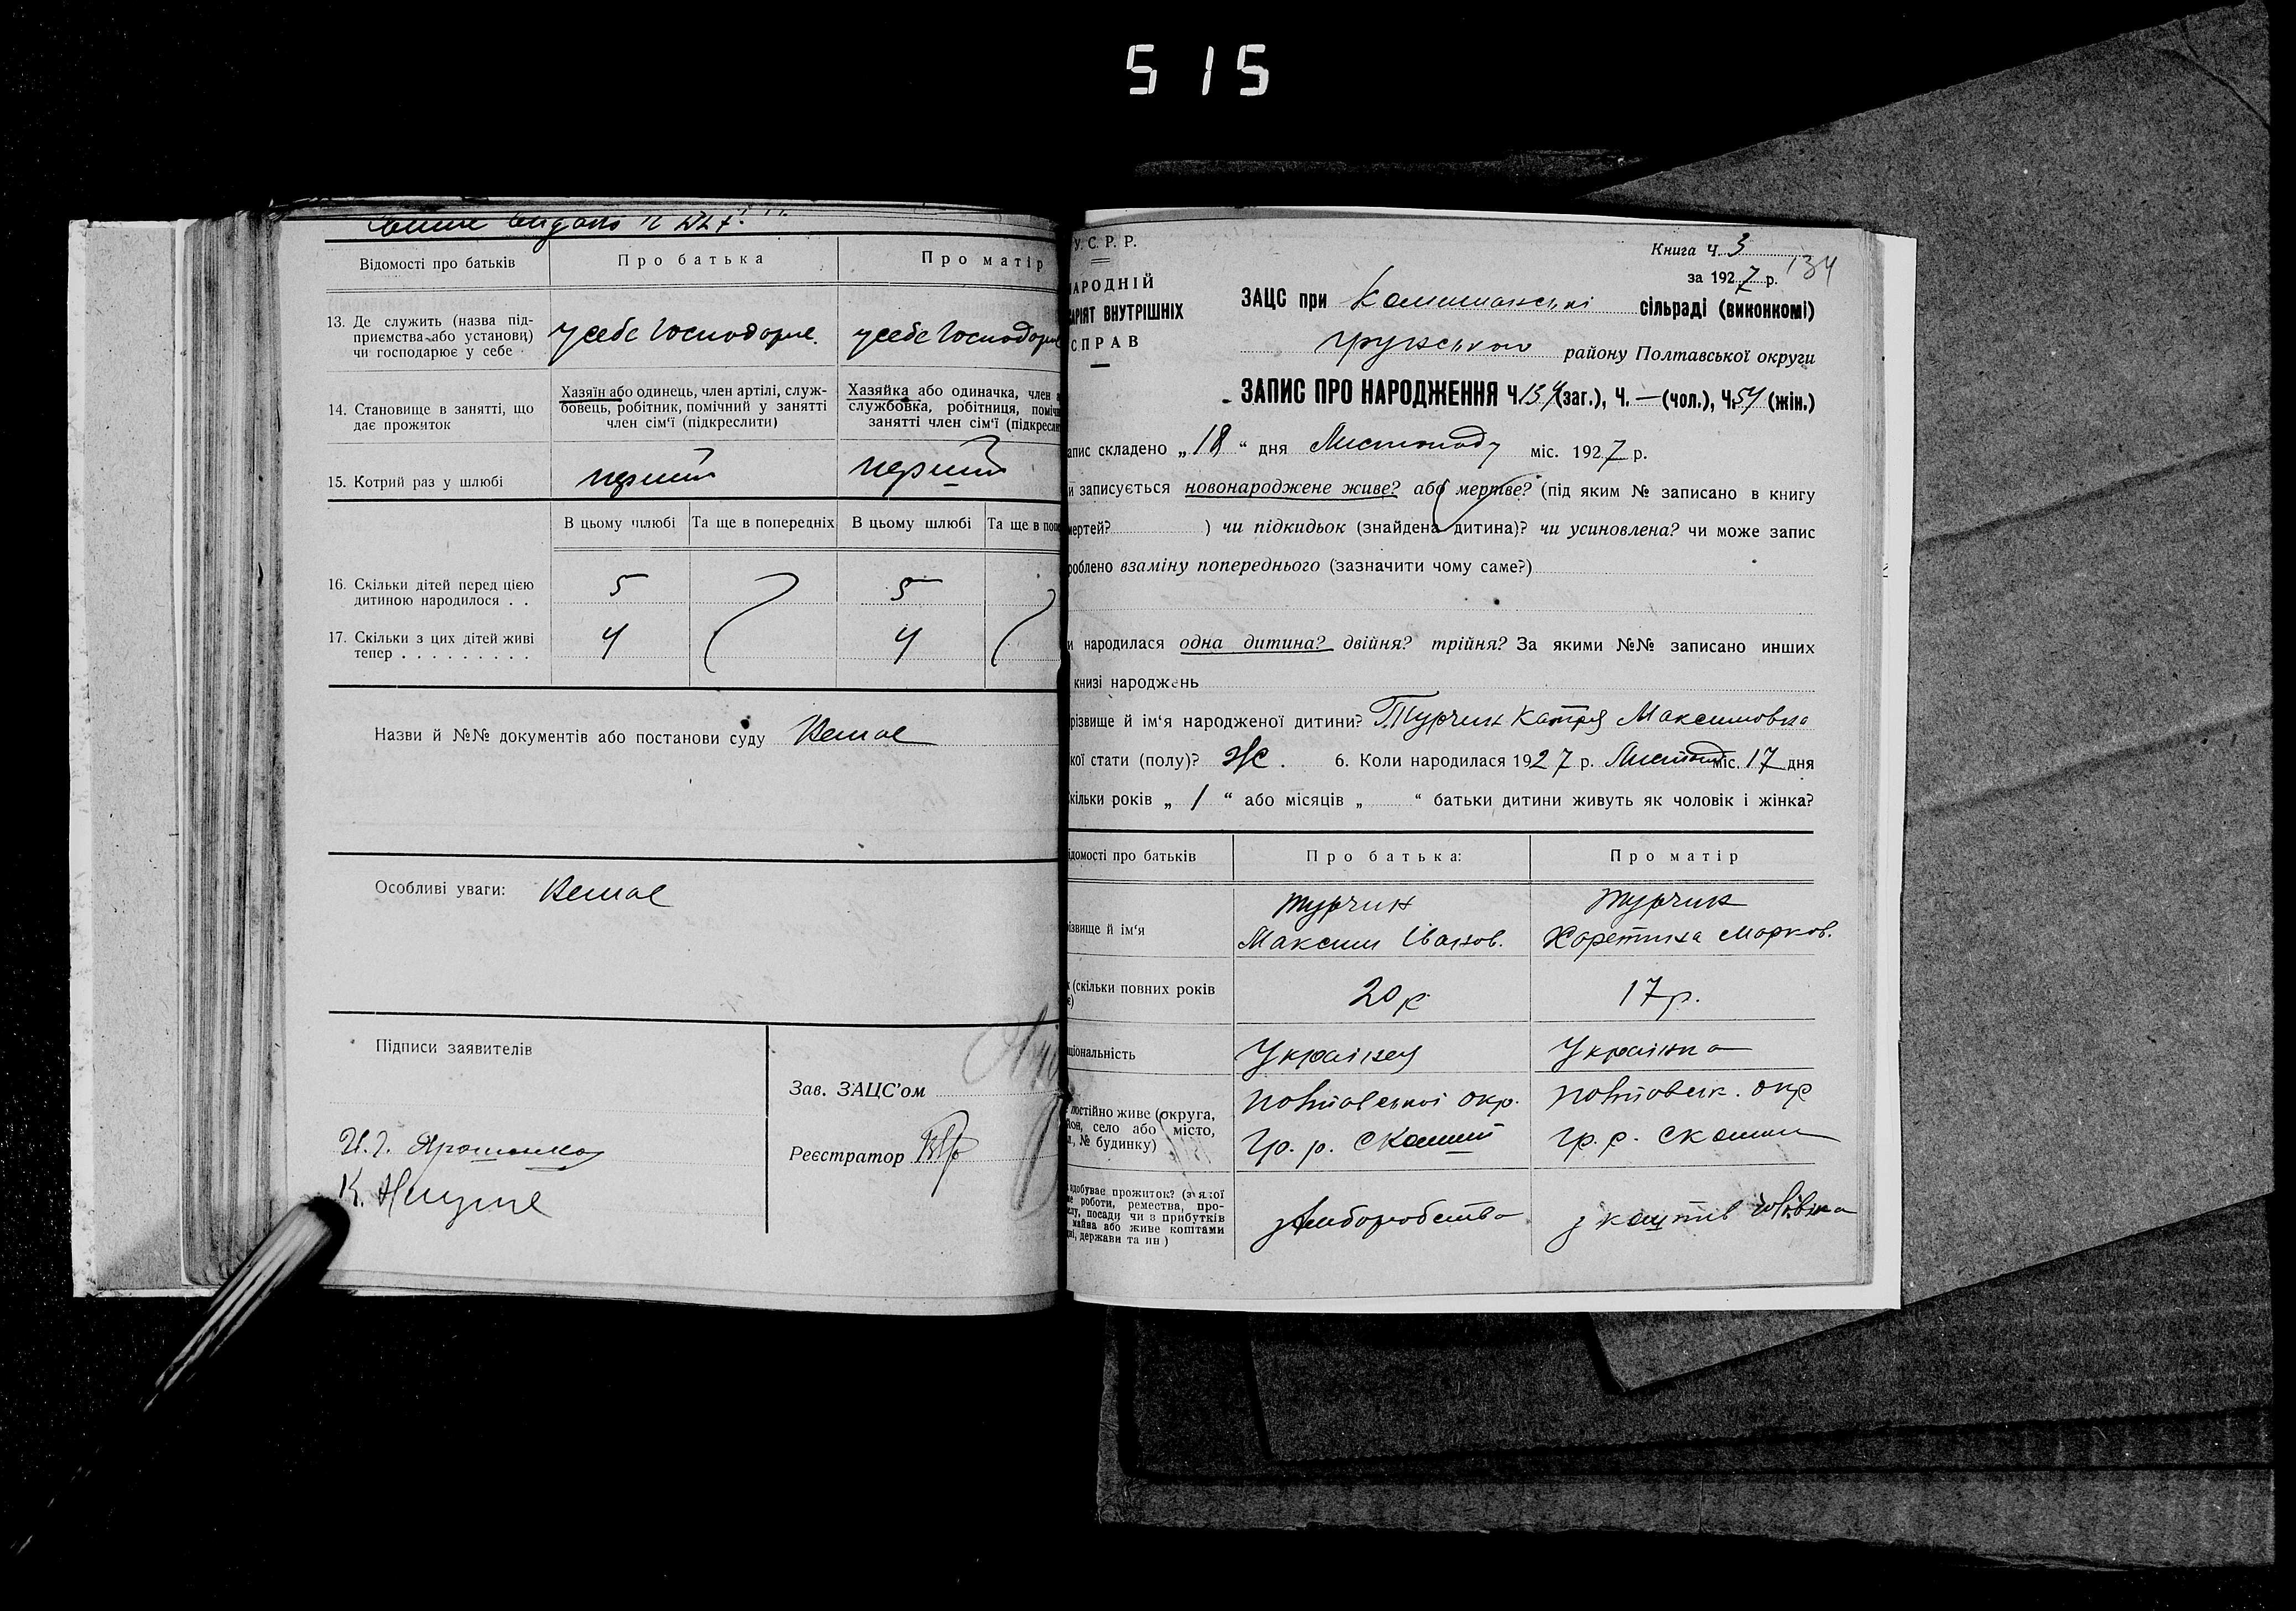 515
видано
Відомості про батьків
Про батька
Про матір
13. Де служить (назва під-
приємства або установи)
чи господарює у себе
у себе господарює.
у себе господарює
14. Становище в занятті, що
дає прожиток
Хазяїн або одинець, член артілі, служ-
бовець, робітник, помічний у занятті
член сім'ї (підкреслити)
Хазяйка або одиначка, член а
службовка, робітниця, поміч
занятті член сім'ї (підкресли
15. Котрий раз у шлюбі
перший
перший
В цьому шлюбі
Та ще в попередніх
В цьому шлюбі
Та ще в поп
16. Скільки дітей перед цією
дитиною народилося . .
5
5
17. Скільки з цих дітей живі
тепер . . . . . . . . .
4
4
Назви й №№ документів або постанови суду Немає
Особливі уваги: Немає
Підписи заявителів
Зав. ЗАЦС'ом
Реєстратор
К.
У. С. Р. Р.
АРОДНІЙ
АРІЯТ ВНУТРІШНІХ
СПРАВ
Книга Ч. 3
за 1927 р.
134
ЗАЦС при сільраді (виконкомі)
району Полтавської округи
ЗАПИС ПРО НАРОДЖЕННЯ Ч. 134 (заг.), Ч. — (чол.), Ч. 54 (жін.)
апис складено „18" дня Листопаду міс. 1927 р.
и записується новонароджене живе? або мертве? (під яким № записано в книгу
мертей? ) чи підкидьок (знайдена дитина)? чи усиновлена? чи може запис
роблено взаміну попереднього (зазначити чому саме?)
и народилася одна дитина? двійня? трійня? За якими №№ записано инших
книзі народжень
різвище й ім'я народженої дитини? Турчин Катря Максимовна
кої стати (полу)? Ж. 6. Коли народилася 1927 р. Листопад міс. 17 дня
кільки років „1" або місяців „ " батьки дитини живуть як чоловік і жінка?
ідомості про батьків
Про батька:
Про матір
ізвище й ім'я
Турчин
Максим Іванов.
Турчин
Харетина Марков.
к (скільки повних років
є)
20 р.
17 р.
ціональність
Українец
Українка
постійно живе (округа,
йон, село або місто,
л, № будинку)
Полтавської окр.
Гр. р.
Полтавськ. окр
Гр. р.
здобуває прожиток? (з якої
ме роботи, ремества, про-
слу, посади чи з прибутків
майна або живе коштами
дні, держави та ин)
з хліборобства
з коштів чоловіка